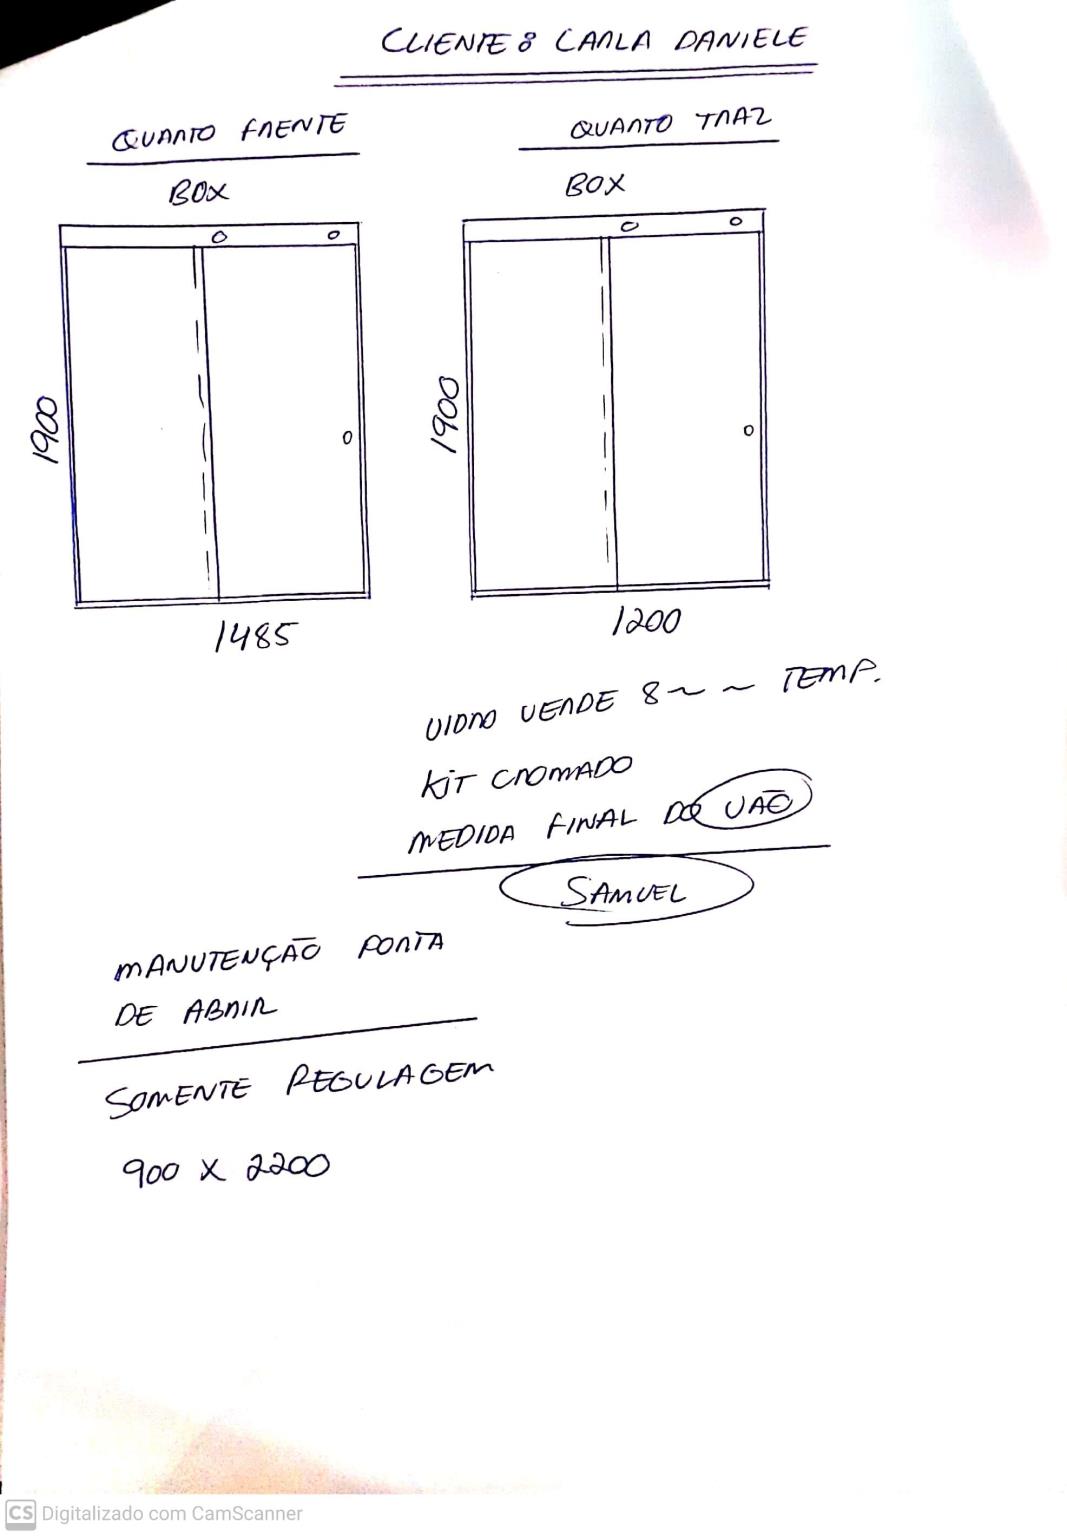 CLIENTE: CARLA DANIELE
QUARTO FRENTE
QUARTO TRAZ
BOX
BOX
1900
1900
1485
1200
VIDRO VERDE 8mm TEMP.
KIT CROMADO
MEDIDA FINAL DO VÃO
SAMUEL
MANUTENÇÃO PORTA
DE ABRIR
SOMENTE REGULAGEM
900 X 2200
CS Digitalizado com CamScanner